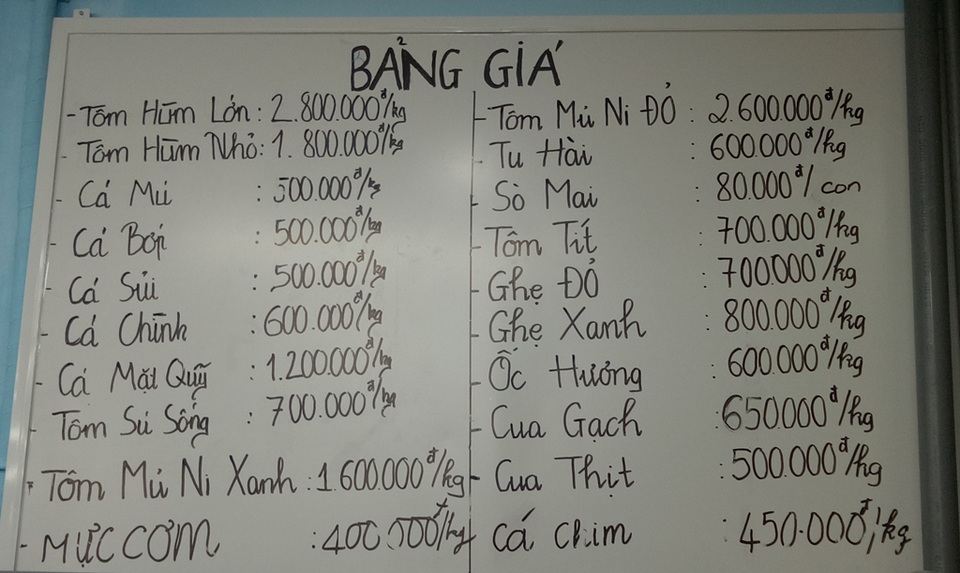 BẢNG GIÁ
- Tôm Hùm Lớn : 2.800.000đ/kg
- Tôm Hùm Nhỏ : 1.800.000đ/kg
- Cá Mú : 500.000đ/kg
- Cá Bớp : 500.000đ/kg
- Cá Sủi : 500.000đ/kg
- Cá Chình : 600.000đ/kg
- Cá Mặt Quỹ : 1.200.000đ/kg
- Tôm Sú Sống : 700.000đ/kg
- Tôm Mú Ni Xanh : 1.600.000đ/kg
- MỰC CƠM : 400.000đ/kg
- Tôm Mú Ni Đỏ : 2.600.000đ/kg
- Tu Hài : 600.000đ/kg
- Sò Mai : 80.000đ/con
- Tôm Tít : 700.000đ/kg
- Ghẹ Đỏ : 700.000đ/kg
- Ghẹ Xanh : 800.000đ/kg
- Ốc Hương : 600.000đ/kg
- Cua Gạch : 650.000đ/kg
- Cua Thịt : 500.000đ/kg
- Cá Chim : 450.000đ/kg